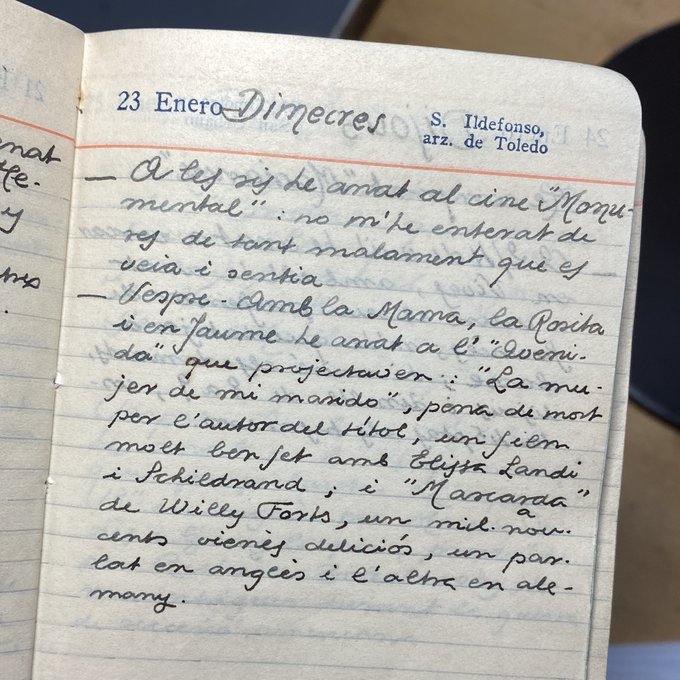 enat
He-
y
23 Enero Dimecres
S. Ildefonso,
arz. de Toledo
— A les sis he anat al cine "Monu-
mental": no m'he enterat de
res de tant malament que es
veia i sentia
— Vespre. Amb la Mama, la Rosita
i en Jaume he anat a l'"Aveni-
da" que projectaven: "La mu-
jer de mi marido", pena de mort
per l'autor del títol, un film
molt ben fet amb Elissa Landi
i Schildrand; i "Mascarada"
de Willy Forts, un mil. nou-
cents vienès deliciós, un par-
lat en anglès i l'altra en ale-
many.